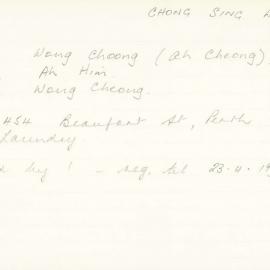 CHONG SING
Wong Choong (Ah Cheong)
Ah Him.
Wong Cheong.
454 Beaufort St, Perth
Laundry.
by ! - reg. tel 23.4.19